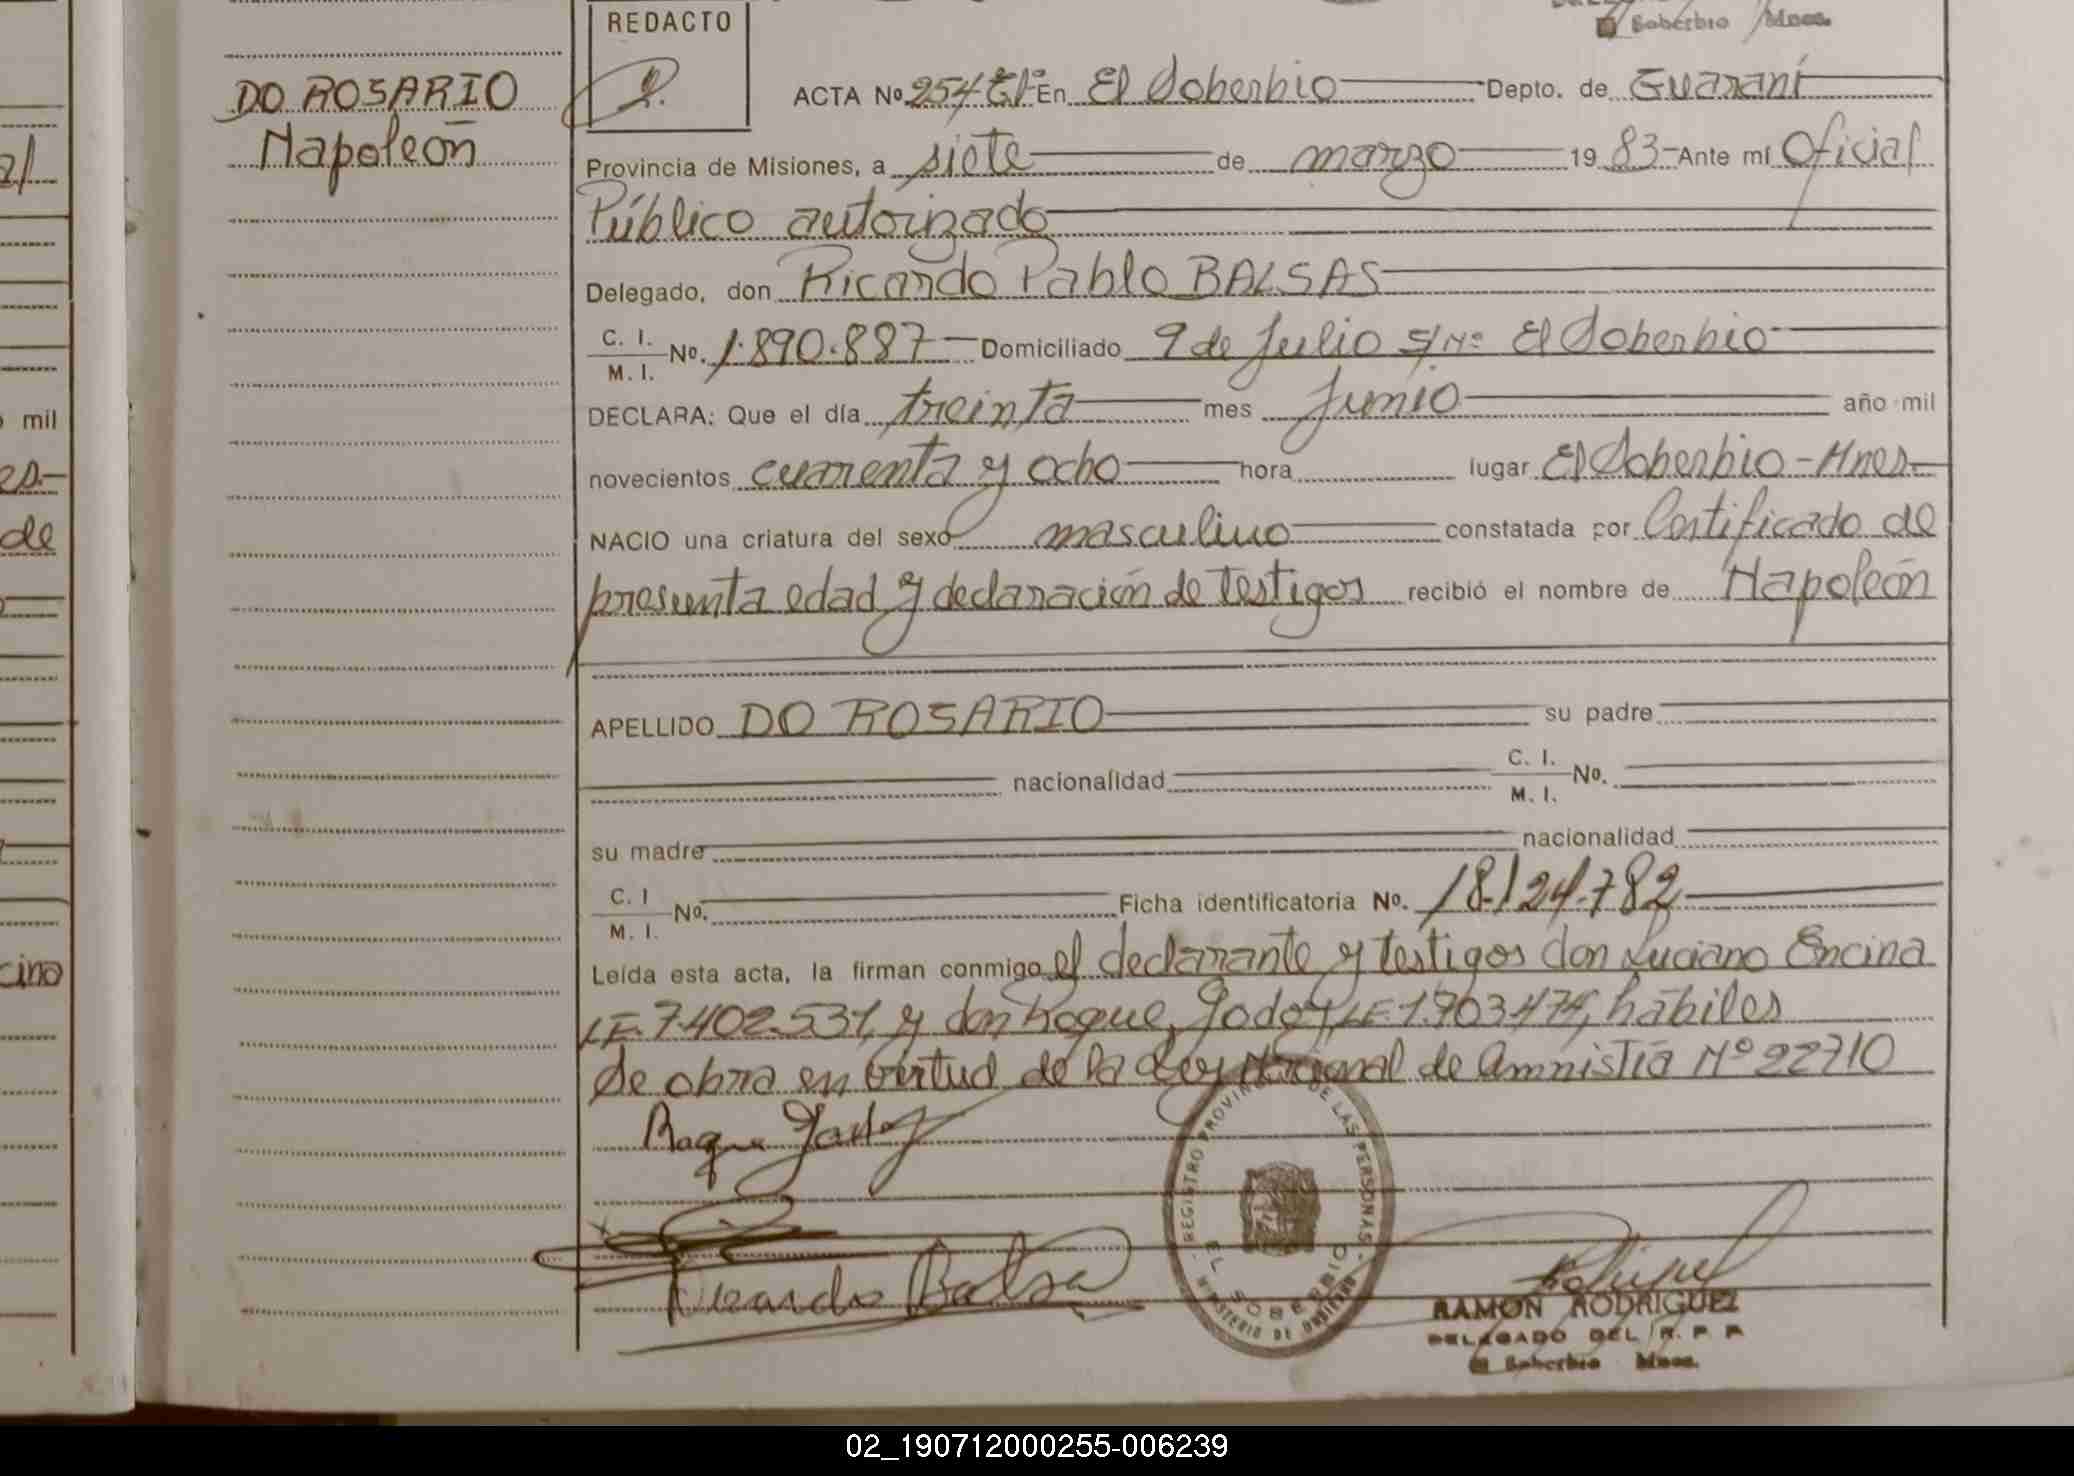 Soberbio Mnes.
REDACTO
DO ROSARIO
Napoleón
ACTA No 254 En El Soberbio Depto. de Guaraní
Provincia de Misiones, a siete de marzo 19 83 Ante mí Oficial
Público autorizado
Delegado, don Ricardo Pablo BALSAS
C. I. M. I. No. 1.890.887 Domiciliado 9 de Julio S/Nº El Soberbio
DECLARA: Que el día treinta mes Junio año mil
novecientos cuarenta y ocho hora lugar El Soberbio - Mnes.
NACIO una criatura del sexo masculino constatada por Certificado de
presunta edad y declaración de testigos recibió el nombre de Napoleón
APELLIDO DO ROSARIO su padre
nacionalidad C. I. M. I. No.
su madre nacionalidad
C. I M. I. No. Ficha identificatoria No. 18.124.782
Leída esta acta, la firman conmigo el declarante y testigos don Luciano Encina
LE. 7.402.531, y don Roque Godoy LE. 1.703.474, hábiles
de obra en virtud de la Ley Nacional de Amnistía Nº 22710
Roque Godoy
Ricardo Balsa
REGISTRO PROVINCIAL DE LAS PERSONAS
EL SOBERBIO
MINISTERIO DE GOBIERNO
RAMON RODRIGUEZ
DELEGADO DEL R. P. P.
El Soberbio Mnes.
mil
de
cino
02_190712000255-006239